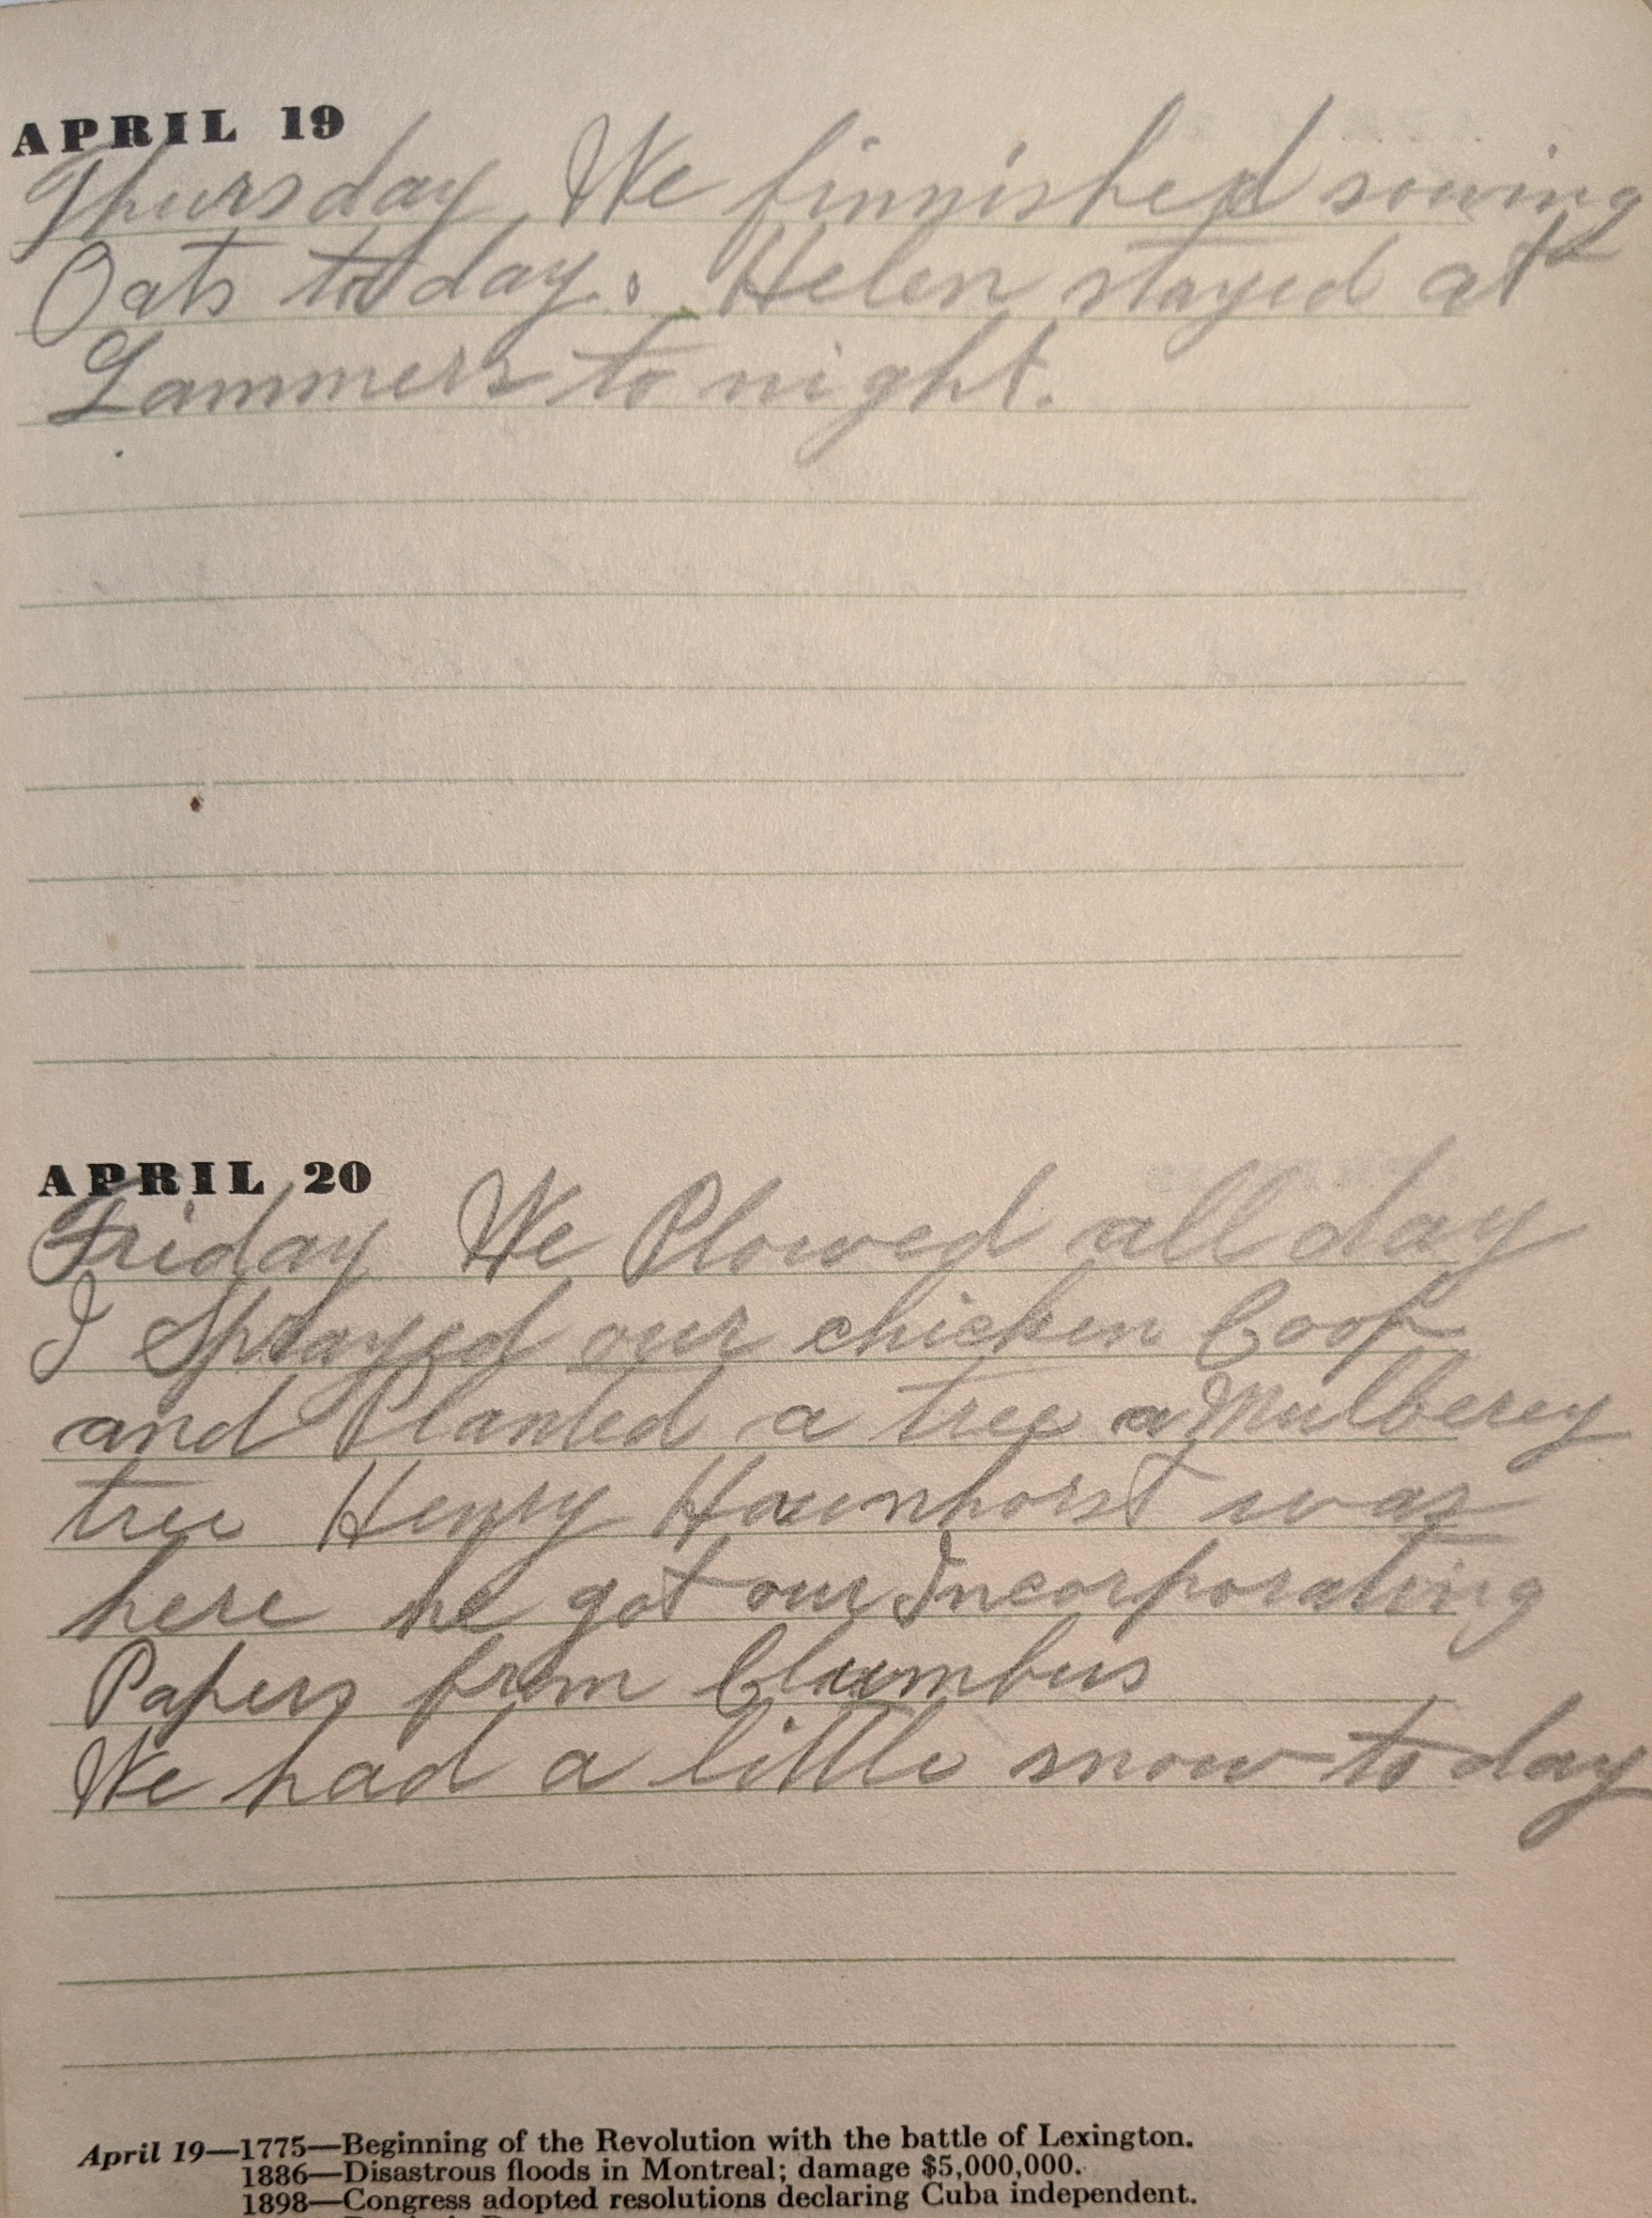 APRIL 19
Thursday, We finnished sowing
Oats to day. Helen stayed at
Lammers to night.
APRIL 20
Friday We Plowed all day
I Sprayed our chicken Coop
and Planted a tree a Mulberey
tree Henry Haunhorst was
here he got our Incorporating
Papers from Clumbus
We had a little snow to day
April 19—1775—Beginning of the Revolution with the battle of Lexington.
1886—Disastrous floods in Montreal; damage $5,000,000.
1898—Congress adopted resolutions declaring Cuba independent.